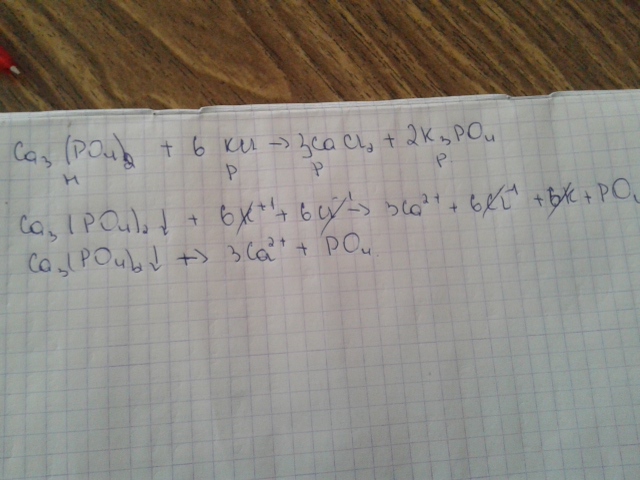 Ca₃(PO₄)₂ + 6 KCl → 3CaCl₂ + 2K₃PO₄
н р р р
Ca₃(PO₄)₂↓ + 6K⁺¹ + 6Cl⁻¹ → 3Ca²⁺ + 6Cl⁻¹ + 6K + PO₄
Ca₃(PO₄)₂↓ → 3Ca²⁺ + PO₄